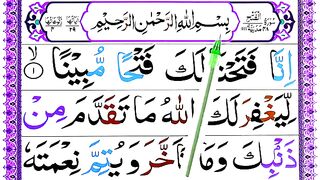 بِسْمِ اللهِ الرَّحْمٰنِ الرَّحِيْمِ
اِنَّا فَتَحْنَا لَكَ فَتْحًا مُّبِيْنًا ۙ۝۱
لِّيَغْفِرَ لَكَ اللهُ مَا تَقَدَّمَ مِنْ
ذَنْۢبِكَ وَمَا تَاَخَّرَ وَيُتِمَّ نِعْمَتَهٗ